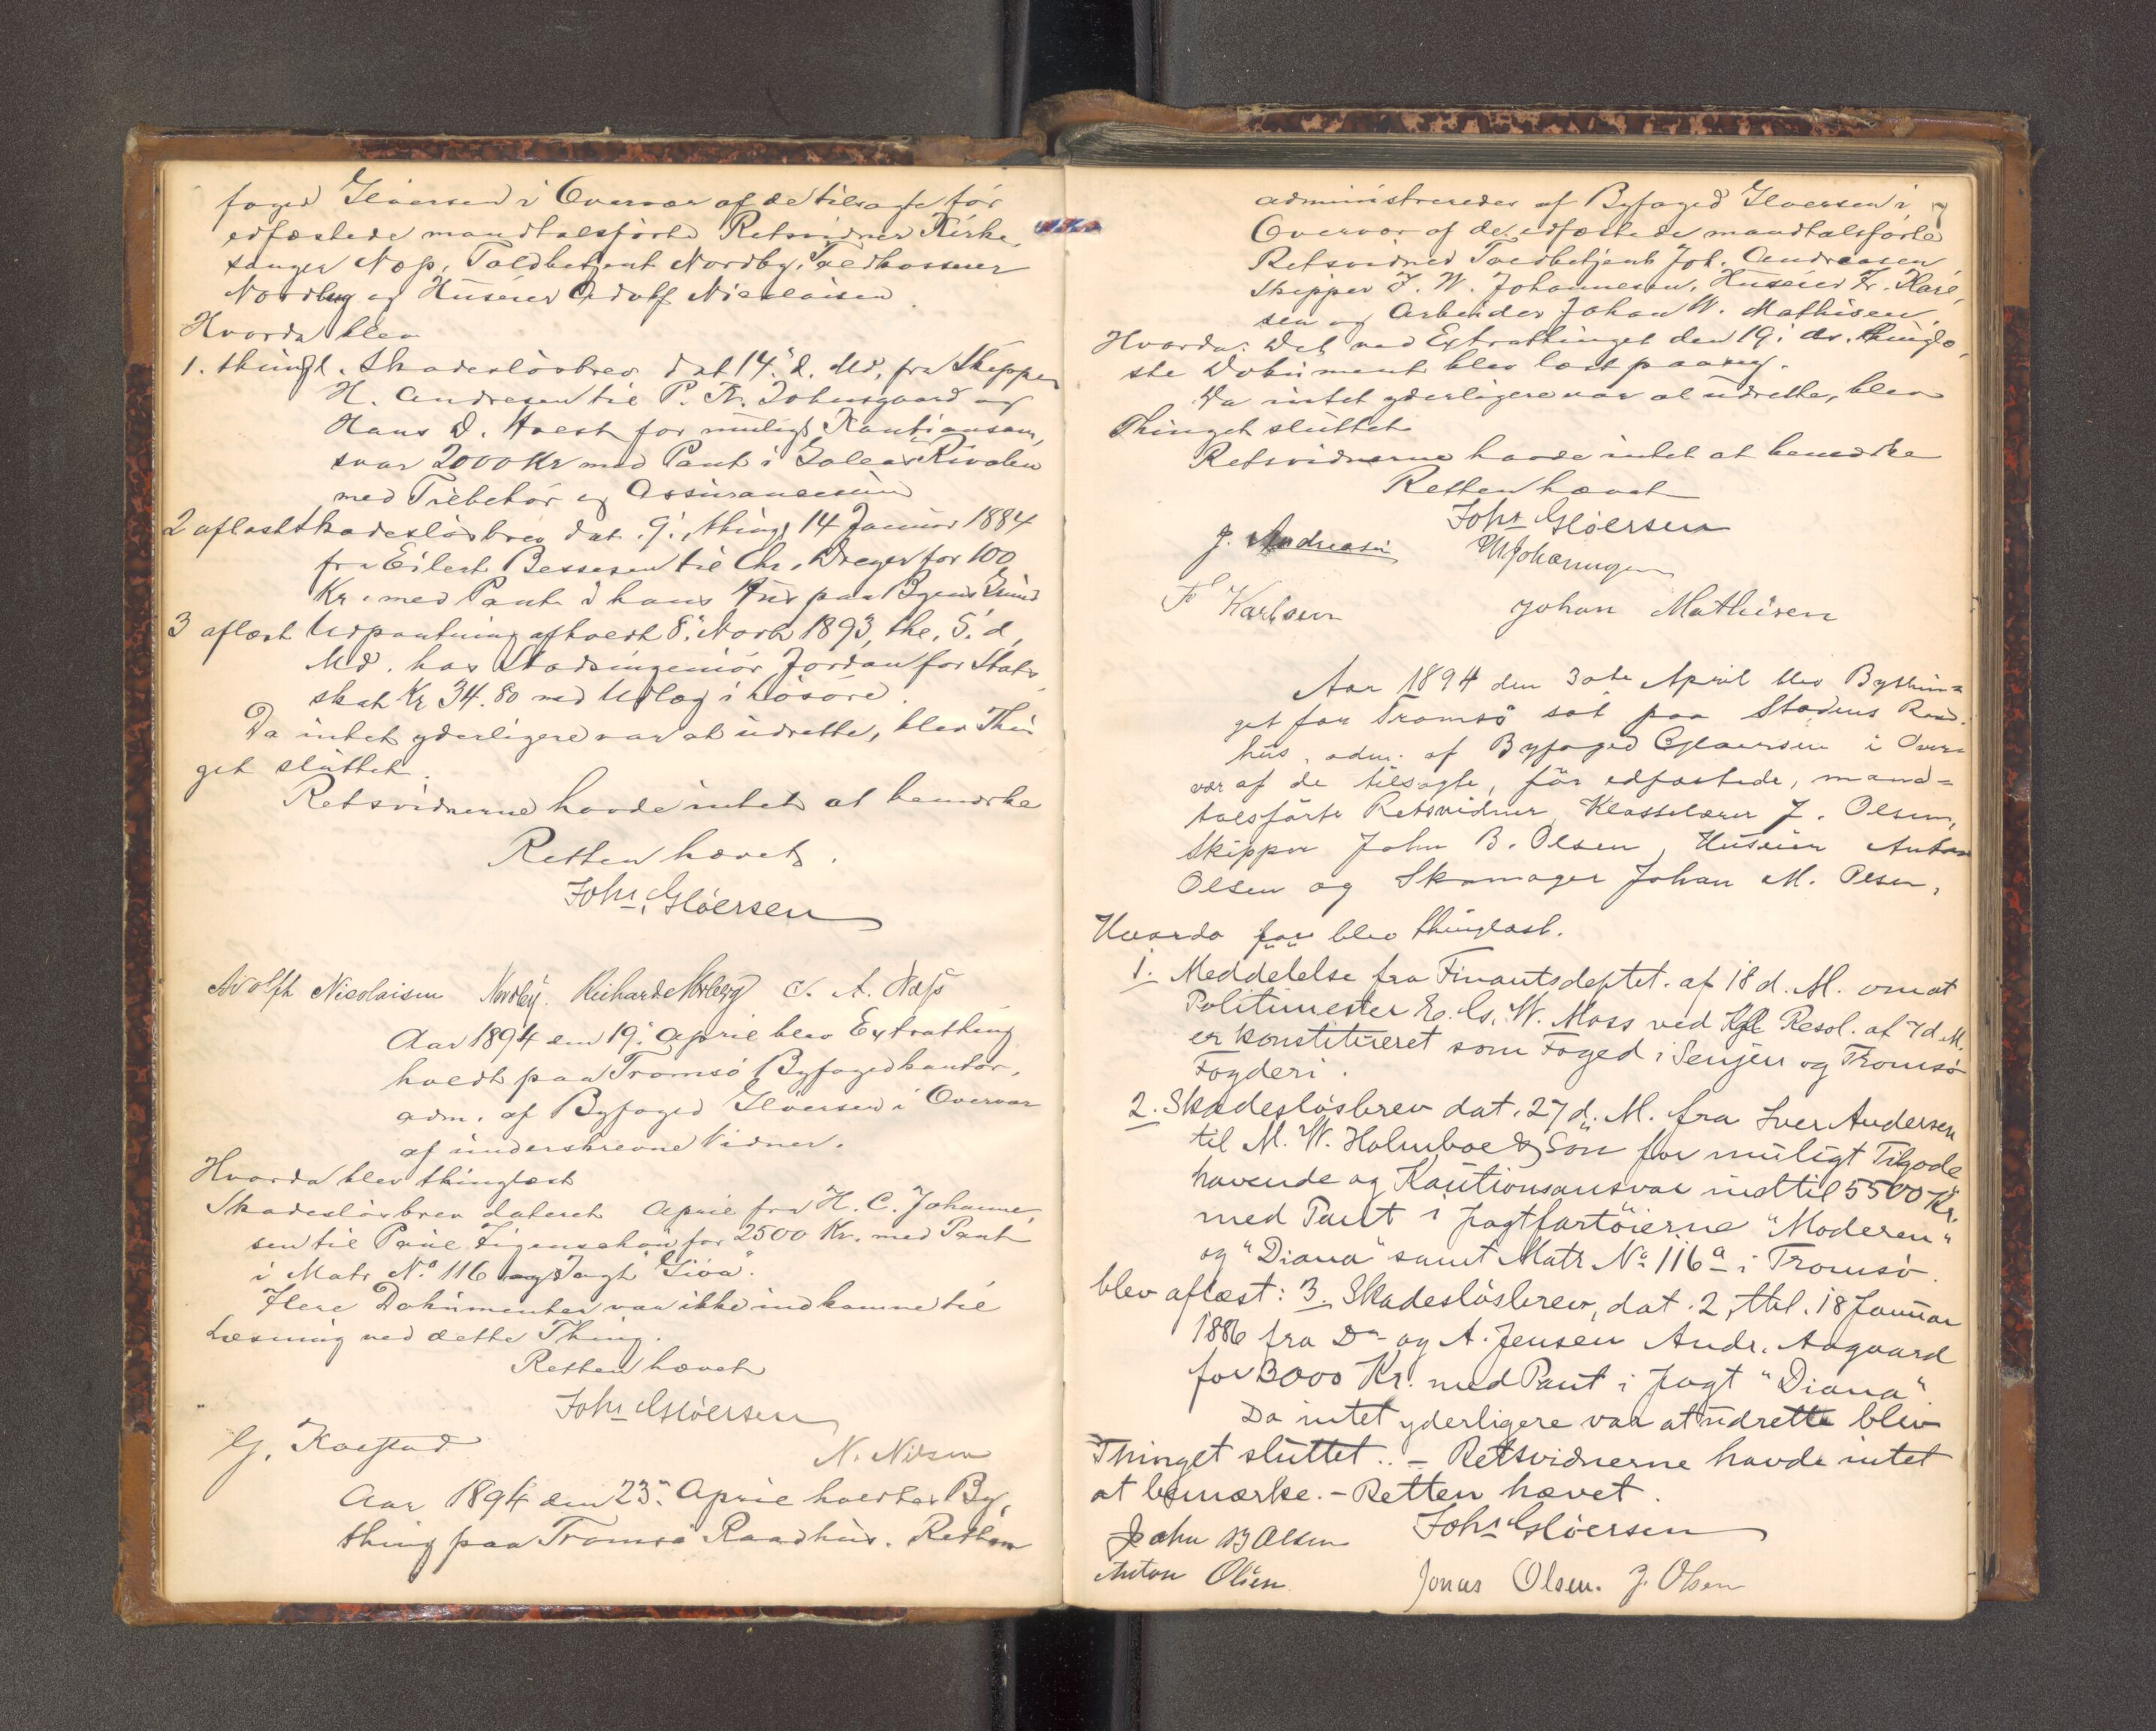 foged Gløersen i Overvær af de tilsagte før
edfæstede mandtalsførte Retsvidner Kirke-
sanger Næss, Toldbetjent Nordby, Toldkasserer
Norberg og Huseier Adolf Nicolaisen.
Hvorda blev
1. thingl. Skadesløsbrev dat 14. d. Md. fra Skipper
H. Andresen til P. N. Johnsgaard og
Hans D. Hvest for muligt Kautionsan-
svar 2000 Kr med Pant i Galeas Rivalen
med Tilbehør og Assurancesum
2 aflæst Skadesløsbrev dat. 9., thingl 14 Januar 1884
fra Eilert Bessesen til Chr. Dreyer for 100
Kr. med Pant i hans Hus paa Byens Grund
3 aflæst Udpantning afholdt 8. Novbr 1893, thl. 5. d.
Md. hos Stadsingeniør Jordan for Stats-
skat Kr 34.80 med Udlæg i Løsøre.
Da intet yderligere var at udrette, blev Thin
get sluttet.
Retsvidnerne havde intet at bemærke
Retten hævet.
Johs Gløersen
Adolph Nicolaisen Nordby. Richard Norberg A. Næss
Aar 1894 den 19. April blev Extrathing
holdt paa Tromsø Byfogedkontor,
adm. af Byfoged Gløersen i Overvær
af underskrevne Vidner.
Hvorda blev thinglæst
Skadesløsbrev dateret April fra H. C. Johanne-
sen til Paul Figenschou for 2500 Kr. med Pant
i Matr No 116 og Jagt "Gjøa".
Flere Dokumenter var ikke indkomne til
Læsning ved dette Thing.
Retten hævet
Johs Gløersen
G. Kræstad N. Nilsen
Aar 1894 den 23. April holdtes By-
thing paa Tromsø Raadhus. Retten
administreredes af Byfoged Gløersen i
Overvær af de edfæstede mandtalsførte
Retsvidner Toldbetjent Joh. Andreasen,
Skipper J. W. Johannesen, Huseier Fr. Karl-
sen og Arbeider Johan W. Mathisen.
Hvorda: Det ved Extrathinget den 19. ds. thinglæ-
ste Dokument blev læst paany.
Da intet yderligere var at udrette, blev
Thinget sluttet.
Retsvidnerne havde intet at bemærke
Retten hævet
Johs Gløersen
J. Andreasen W Johannesen
F Karlsen Johan Mathisen
Aar 1894 den 30te April blev Bythin=
get for Tromsø sat paa Stadens Raad-
hus, adm. af Byfoged Gløersen i Over-
vær af de tilsagte, før edfæstede, mand=
talsførte Retsvidner Klasselærer J. Olsen,
Skipper John B. Olsen, Huseier Anton
Olsen og Skomager Johan M. Olsen,
Hvorda for blev thinglæst.
1. Meddelelse fra Finantsdeptet. af 18 d. M. om at
Politimester E. Cs. W. Moss ved Kgl Resol. af 7 d. M.
er konstitueret som Foged i Senjen og Tromsø
Fogderi.
2. Skadesløsbrev dat. 27 d. M. fra Iver Andersen
til M. W. Holmboe & Søn for muligt Tilgode
havende og Kautionsansvar indtil 5500 Kr.
med Pant i Jagtfartøierne "Moderen"
og "Diana" samt Matr No 116a i Tromsø.
blev aflæst: 3. Skadesløsbrev, dat. 2, thl. 18 Januar
1886 fra Do og A. Jensen Andr. Aagaard
for 3000 Kr. med Pant i Jagt "Diana"
Da intet yderligere var at udrette blev
Thinget sluttet. - Retsvidnerne havde intet
at bemærke. - Retten hævet.
Johs Gløersen
John B Olsen
Anton Olsen Jonas Olsen. J. Olsen